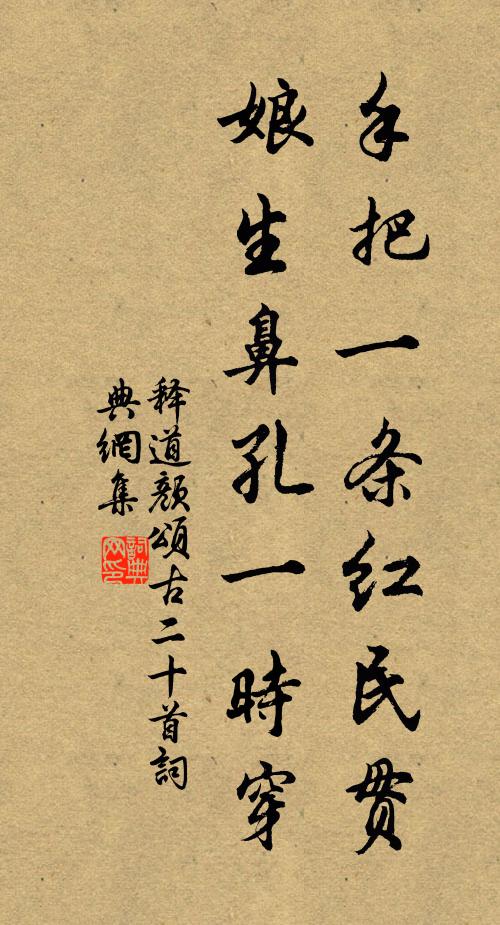 手把一条红民贯
娘生鼻孔一時穿
释道颜頌古二十首詞
典網集
詞典
网印